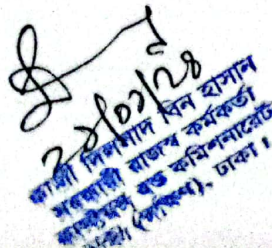 ২৮/০১/২৪
কাজী দিলশাদ বিন হাসান
সহকারী রাজস্ব কর্মকর্তা
কাস্টমস বন্ড কমিশনারেট
(দক্ষিণ), ঢাকা।